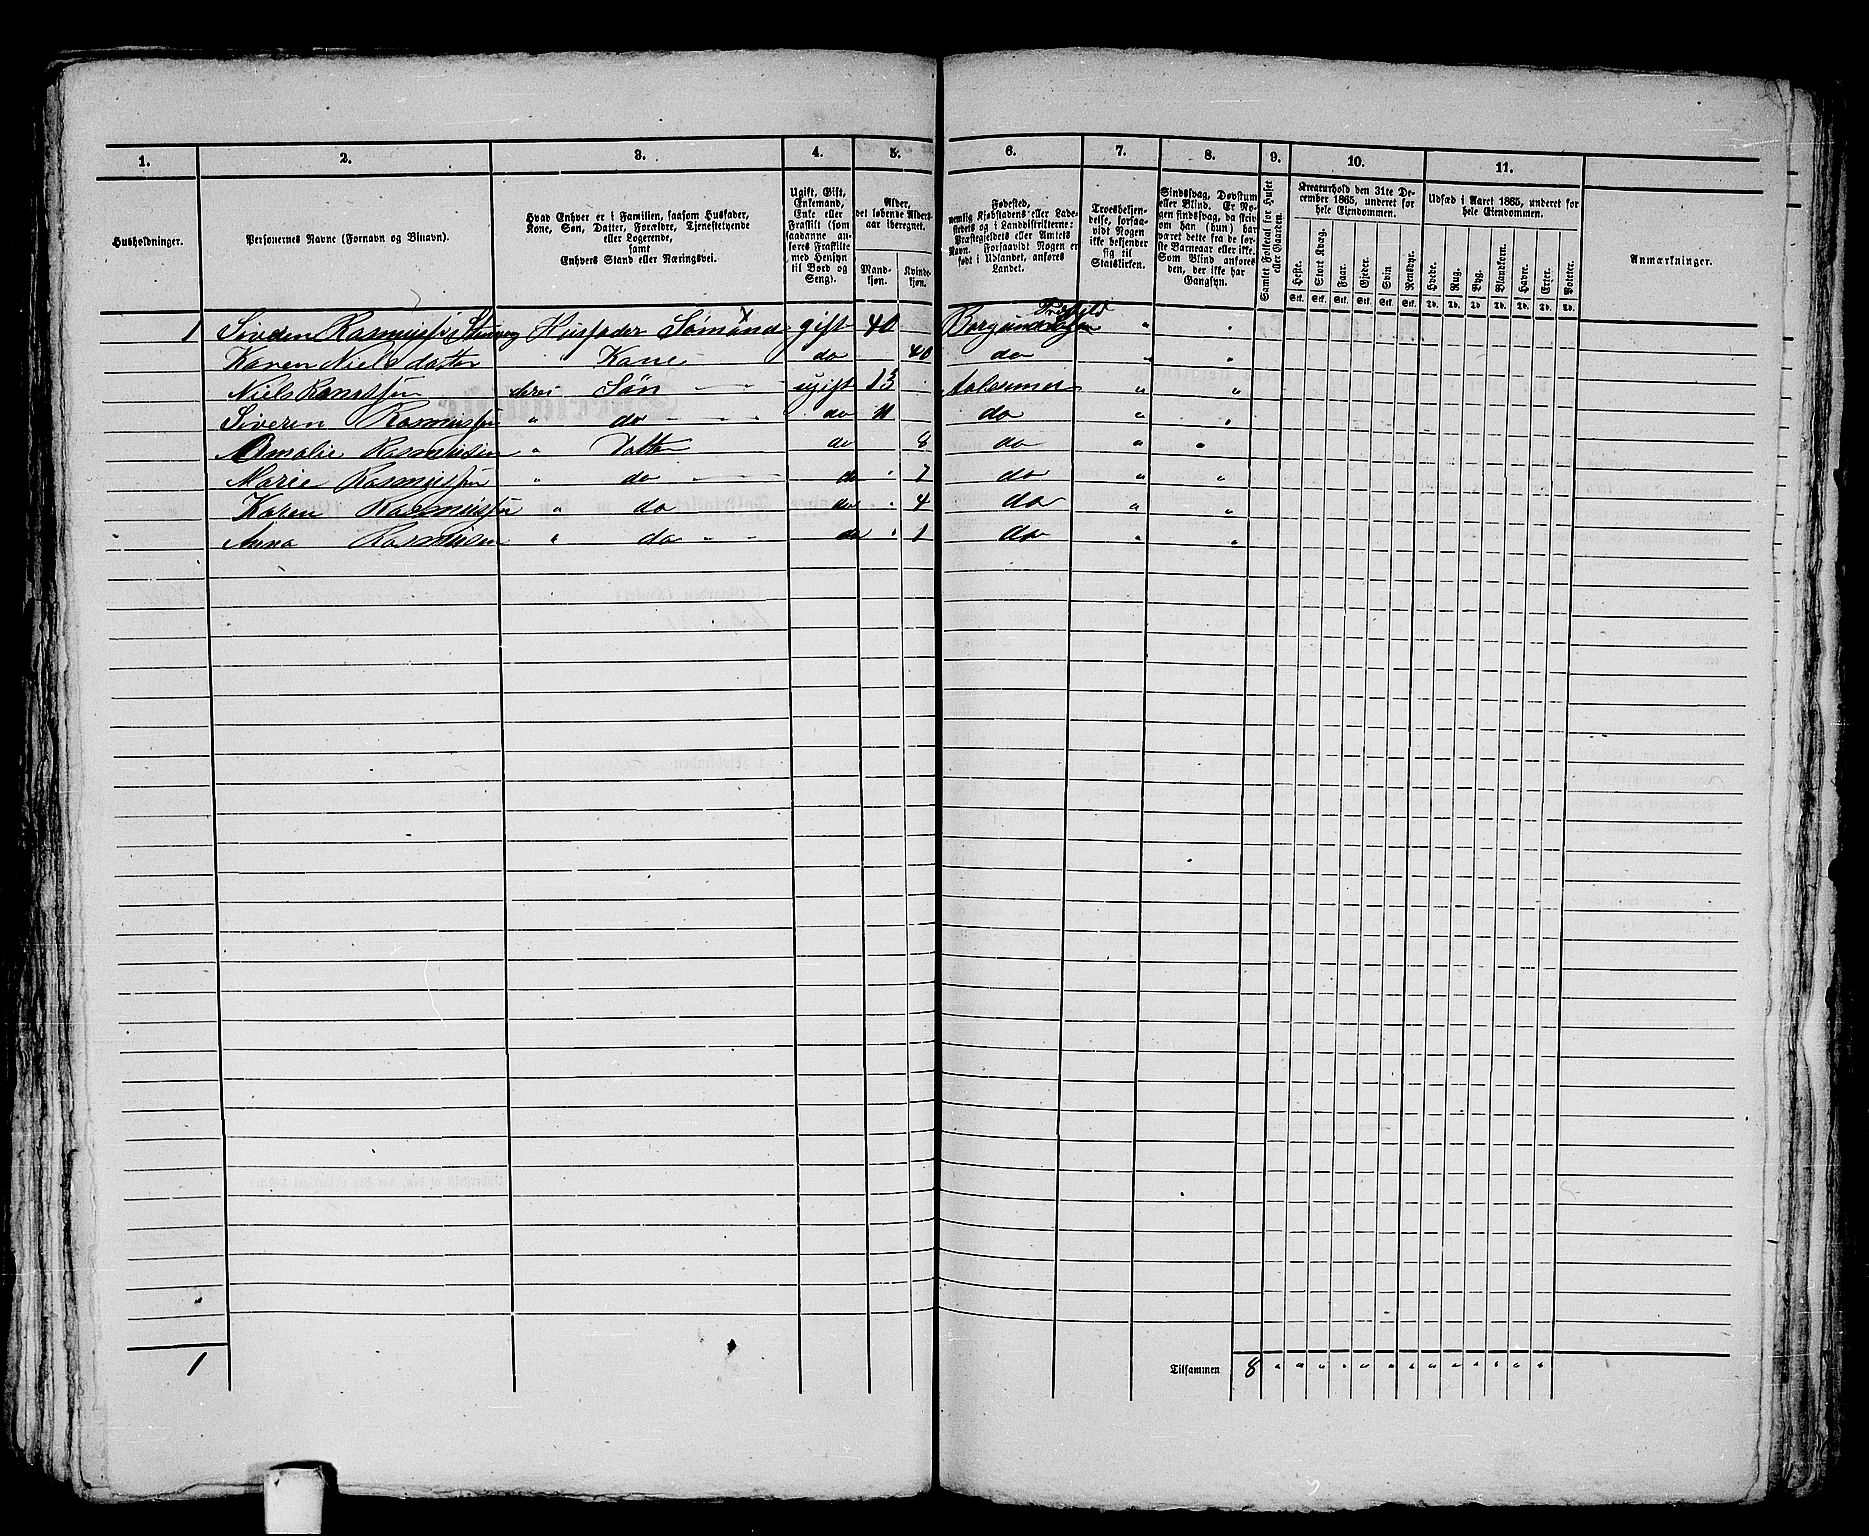 1. 2. 3. 4. 5. 6. 7. 8. 9. 10. 11.
Husholdninger.
Personernes Navne (Fornavn og Binavn).
Hvad Enhver er i Familien, saasom Husfader,
Kone, Søn, Datter, Forældre, Tjenestetyende
eller Logerende,
samt
Enhvers Stand eller Næringsvei.
Ugift, Gift,
Enkemand,
Enke eller
Fraskilt (som
saadanne an-
føres Fraskilte
med Hensyn
til Bord og
Seng).
Alder,
det løbende Alders-
aar iberegnet.
Mand-
kjøn.
Kvinde-
kjøn.
Fødested,
nemlig Kjøbstadens eller Lade-
stedets og i Landdistrikterne:
Præstegjeldets eller Amtets
Navn. Forsaavidt Nogen er
født i Udlandet, anføres
Landet.
Troesbekjen-
delse, forsaa-
vidt Nogen
ikke bekjender
sig til
Statskirken.
Sindssvag, Døvstum
eller Blind. Er No-
gen sindssvag, da skriv
om han (hun) har
været dette fra de før-
ste Barneaar eller ikke.
Som Blind anføres
den, der ikke har
Gangsyn.
Samlet Folketal for Huset
eller Gaarden.
Kreaturhold den 31te De-
cember 1865, underet for
hele Eiendommen.
Heste. Stort Kvæg. Faar. Gjeder. Svin Rensdyr.
Stk. Stk. Stk. Stk. Stk. Stk.
Udsæd i Aaret 1865, underet for
hele Eiendommen.
Hvede. Rug. Byg. Blandkorn. Havre. Erter. Poteter.
Td. Td. Td. Td. Td. Td. Td.
Anmærkninger.
1 Rasmussen Husfader Sømand gift 40 Borgund " "
Karen Nielsdatter Kone do 40 do " "
Niels Søn ugift 13 Aalesund " "
Siveren Rasmussen " do do 11 do " "
Amalie Rasmussen " Datter do 8 do " "
Marie Rasmussen " do do 7 do " "
Karen Rasmussen " do do 4 do " "
Anna Rasmussen " do do 1 do " "
1 Tilsammen 8 " " " " " " " " " " " "